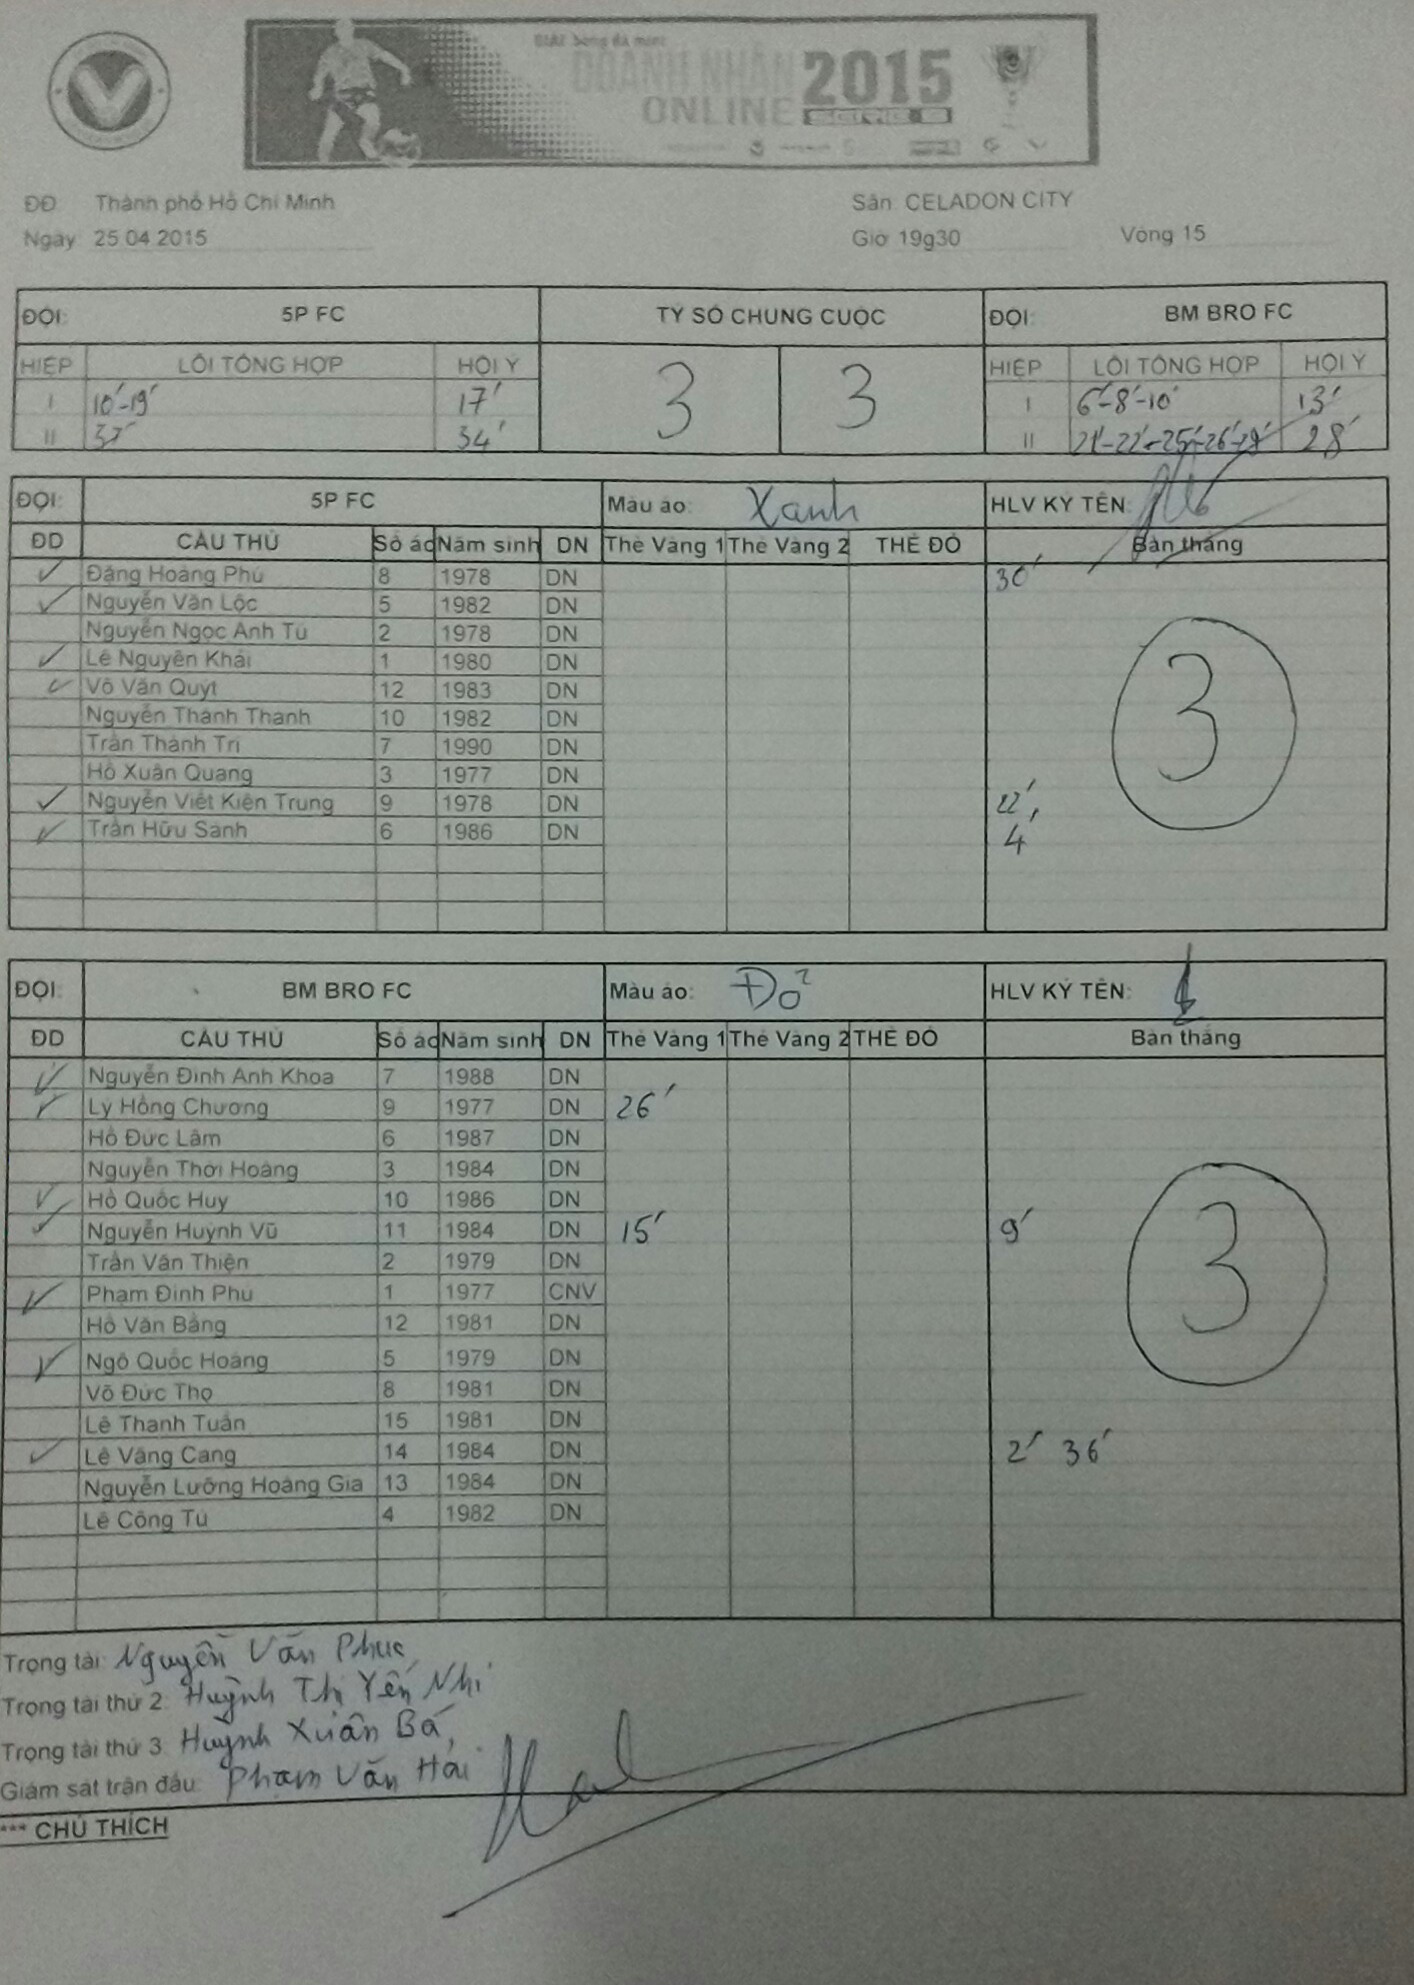 GIẢI bóng đá mini
DOANH NHÂN 2015
ONLINE SERIE B
ĐĐ Thành phố Hồ Chí Minh Sân: CELADON CITY
Ngày 25.04.2015 Giờ 19g30 Vòng 15
ĐỘI: 5P FC TỶ SỐ CHUNG CUỘC ĐỘI: BM BRO FC
HIỆP LỖI TỔNG HỢP HỘI Ý 3 3 HIỆP LỖI TỔNG HỢP HỘI Ý
I 10'-19' 17' I 6'-8'-10' 13'
II 34' II 21'-22'-25'-26' 28'
ĐỘI: 5P FC Màu áo: Xanh HLV KÝ TÊN:
ĐD CẦU THỦ Số áo Năm sinh DN Thẻ Vàng 1 Thẻ Vàng 2 THẺ ĐỎ Bàn thắng
Đặng Hoàng Phú 8 1978 DN 30'
Nguyễn Văn Lộc 5 1982 DN
Nguyễn Ngọc Anh Tú 2 1978 DN
Lê Nguyên Khải 1 1980 DN
Võ Văn Quýt 12 1983 DN
Nguyễn Thành Thanh 10 1982 DN
Trần Thành Trí 7 1990 DN
Hồ Xuân Quang 3 1977 DN
Nguyễn Viết Kiên Trung 9 1978 DN 22',
Trần Hữu Sanh 6 1986 DN 4
3
ĐỘI: BM BRO FC Màu áo: Đỏ HLV KÝ TÊN:
ĐD CẦU THỦ Số áo Năm sinh DN Thẻ Vàng 1 Thẻ Vàng 2 THẺ ĐỎ Bàn thắng
Nguyễn Đình Anh Khoa 7 1988 DN
Lý Hồng Chương 9 1977 DN 26'
Hồ Đức Lâm 6 1987 DN
Nguyễn Thới Hoàng 3 1984 DN
Hồ Quốc Huy 10 1986 DN
Nguyễn Huỳnh Vũ 11 1984 DN 15' 9'
Trần Văn Thiện 2 1979 DN
Phạm Đình Phú 1 1977 CNV
Hồ Văn Bằng 12 1981 DN
3
Ngô Quốc Hoàng 5 1979 DN
Võ Đức Thọ 8 1981 DN
Lê Thanh Tuấn 15 1981 DN
Lê Vàng Cang 14 1984 DN 2' 36'
Nguyễn Lưỡng Hoàng Gia 13 1984 DN
Lê Công Tú 4 1982 DN
Trọng tài: Nguyễn Văn Phúc
Trọng tài thứ 2: Huỳnh Thị Yến Nhi
Trọng tài thứ 3: Huỳnh Xuân Bá
Giám sát trận đấu: Phạm Văn Hải
*** CHÚ THÍCH